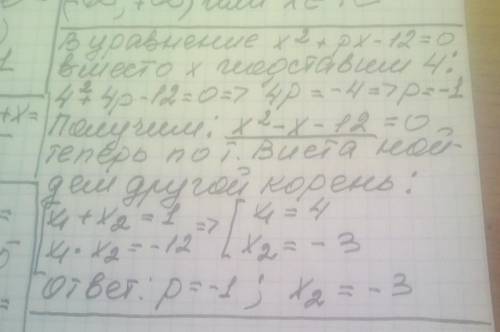 -∞; +∞) или x ∈ R
В уравнение x²+px-12=0
вместо x подставим 4:
4²+4p-12=0=> 4p=-4=>p=-1
Получим: x²-x-12=0
теперь по т. Виета най-
дем другой корень:
x₁+x₂=1 => x₁=4
x₁·x₂=-12 x₂=-3
Ответ: p=-1; x₂=-3